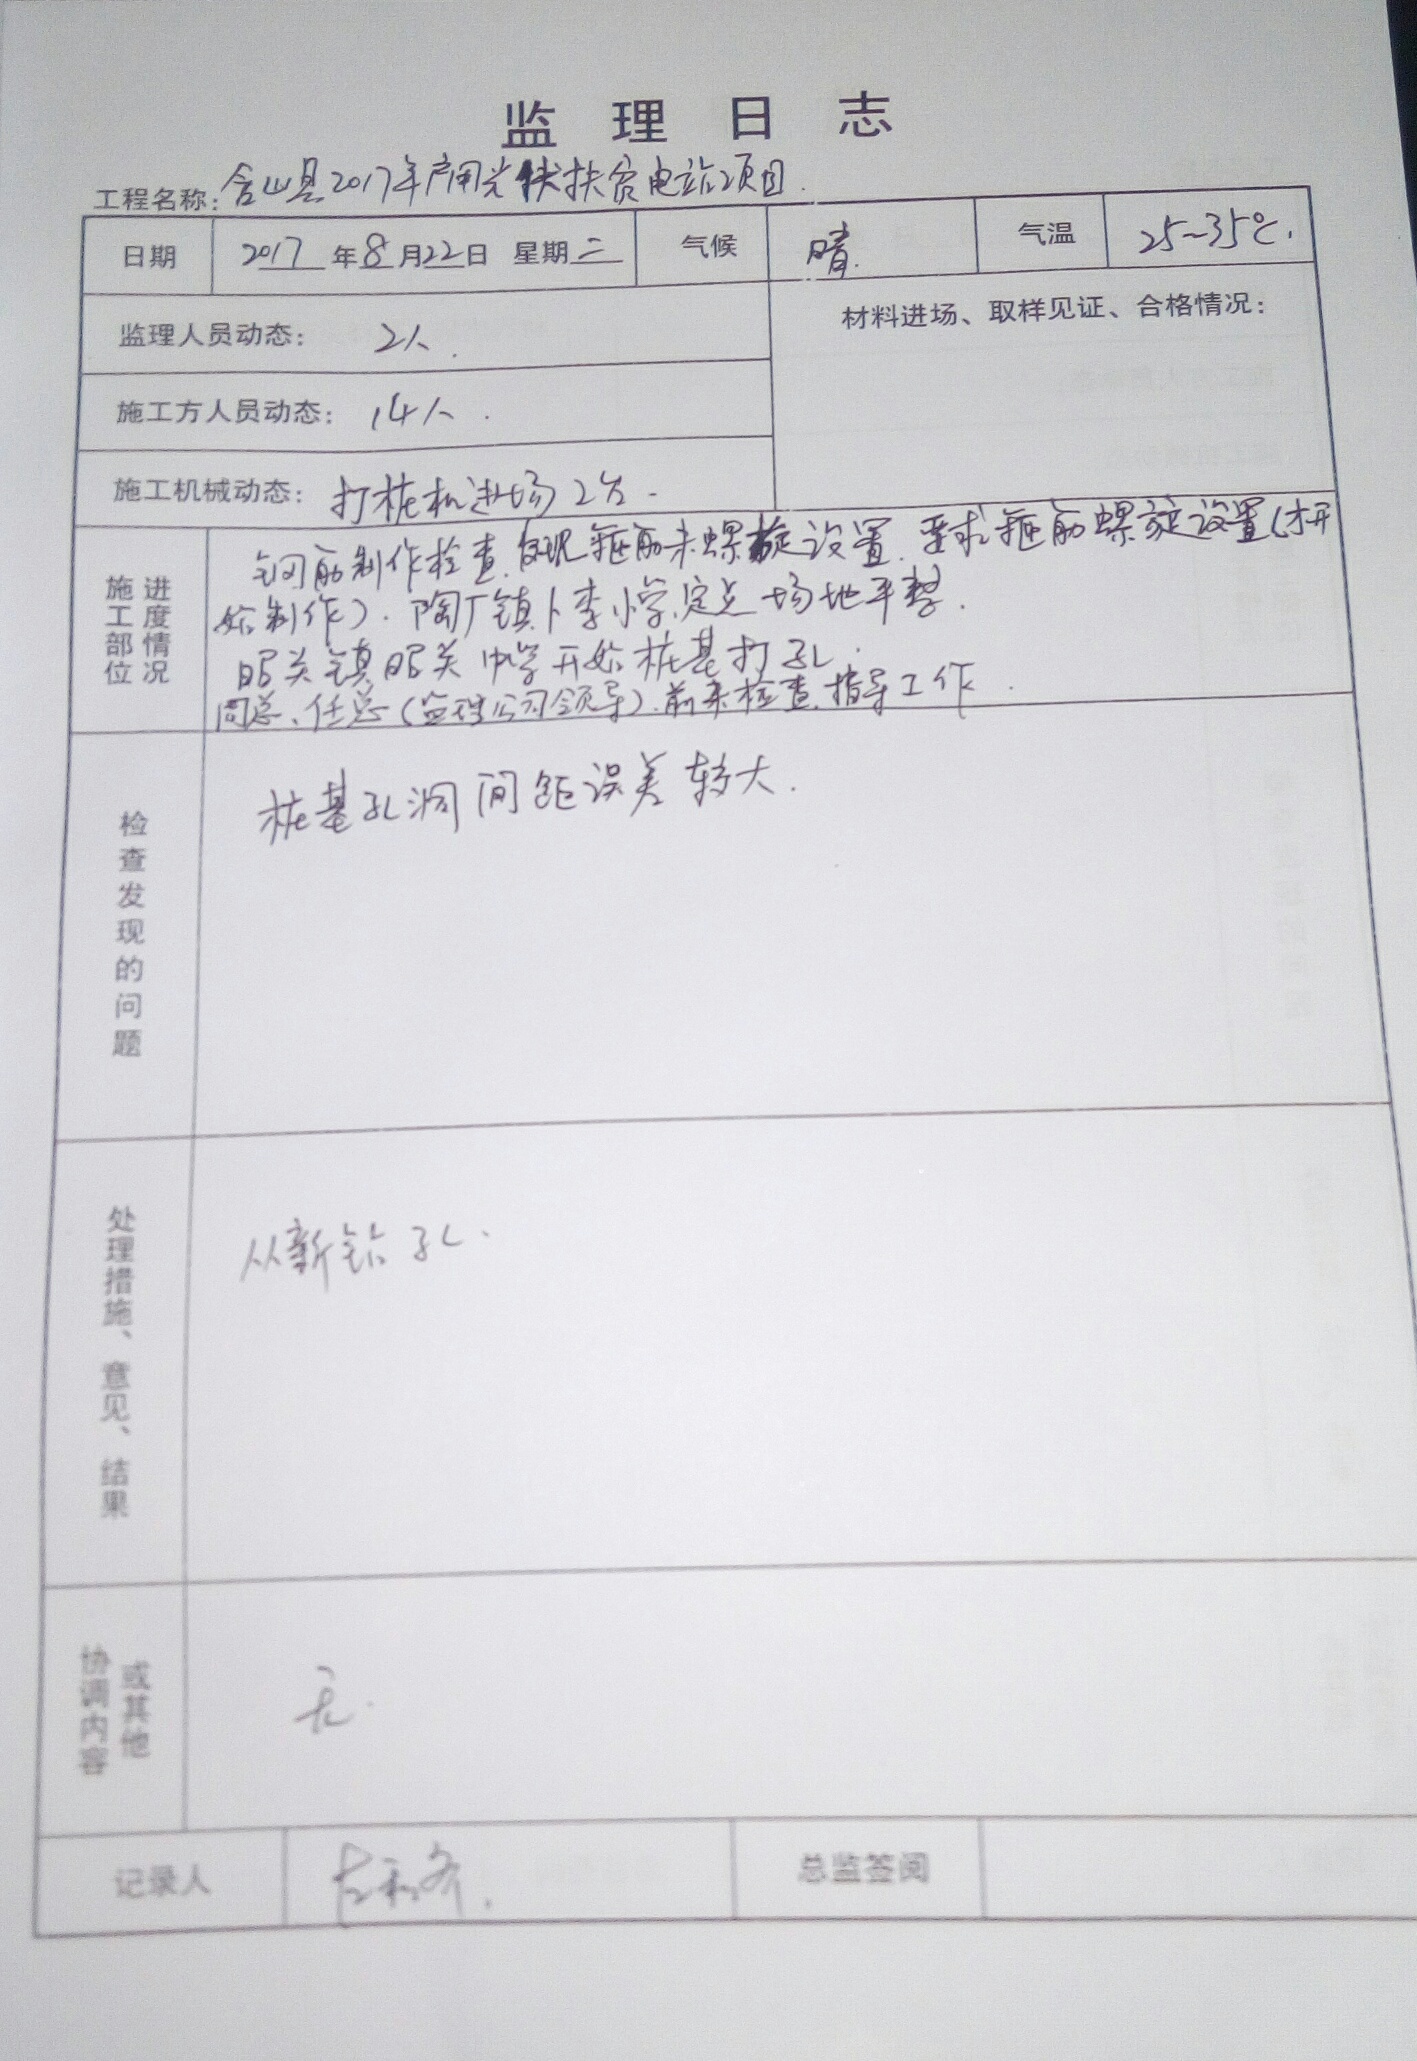 监理日志
工程名称：含山县2017年户用光伏扶贫电站项目.
日期 2017年8月22日 星期二 气候 晴. 气温 25~35℃.
监理人员动态： 2人.
材料进场、取样见证、合格情况：
施工方人员动态： 14人.
施工机械动态： 打桩机进场2台.
施工部位
进度情况
钢筋制作检查,发现箍筋未螺旋设置.要求箍筋螺旋设置(才开
始制作).陶厂镇卜李小学,定点场地平整.
昭关镇昭关中学开始桩基打孔.
周总、任总(监理公司领导).前来检查,指导工作.
检查发现的问题
桩基孔洞间距误差较大.
处理措施、意见、结果
从新钻孔.
协调内容
或其他
无.
记录人
总监签阅